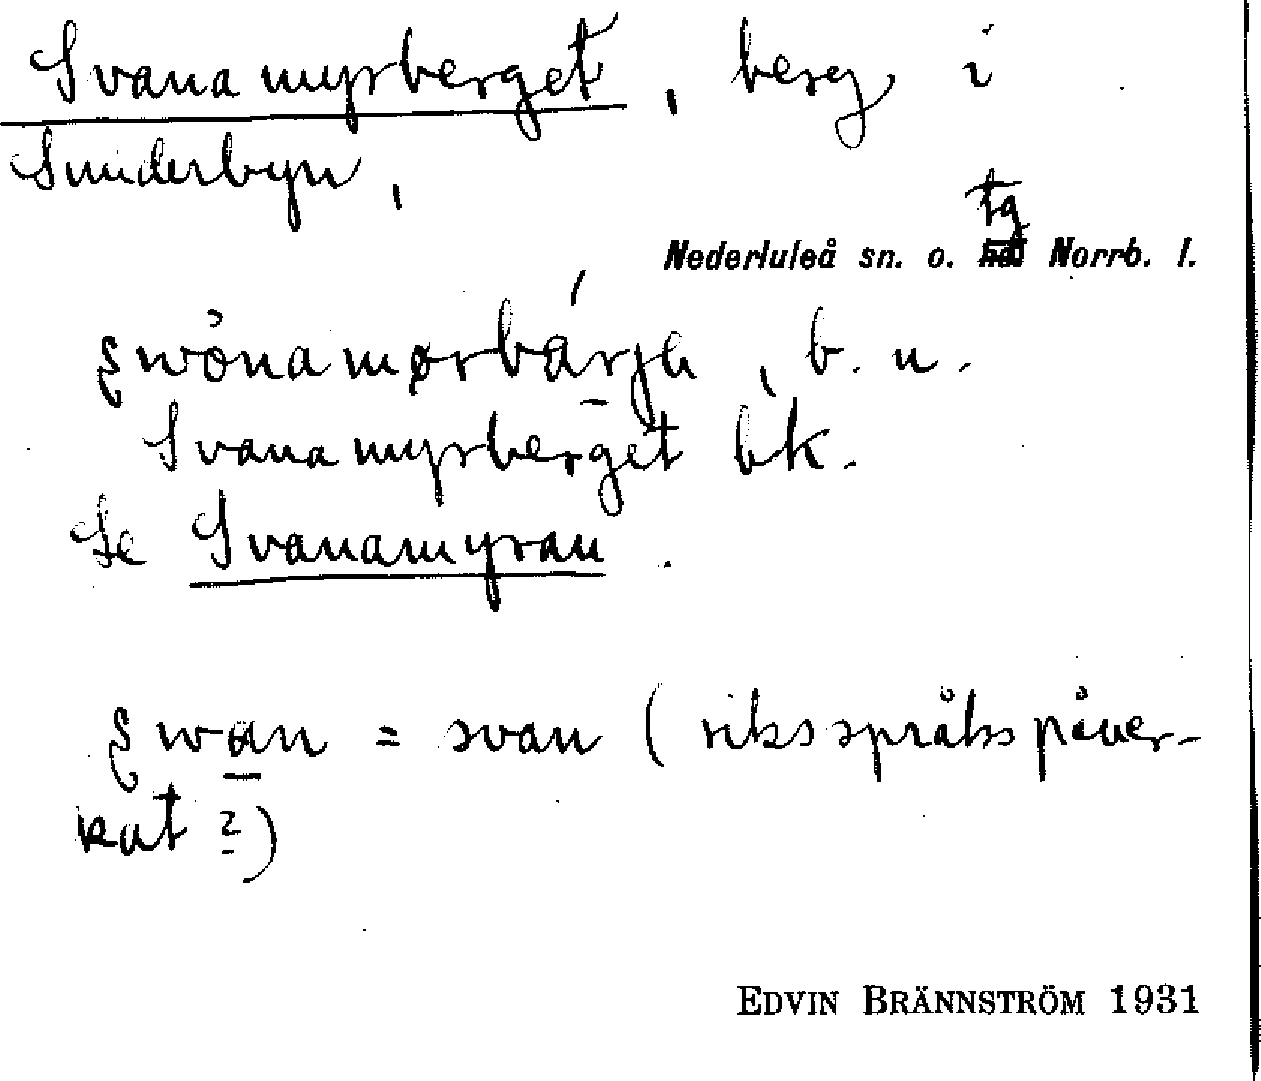 Svanamyrberget, berg i
Sunderbyn,
tg
Nederluleå sn. o. Norrb. l.
b. u.
Svanamyrberget bk.
Se Svanamyran.
= svan (riksspråkspåver-
kat?)
EDVIN BRÄNNSTRÖM 1931